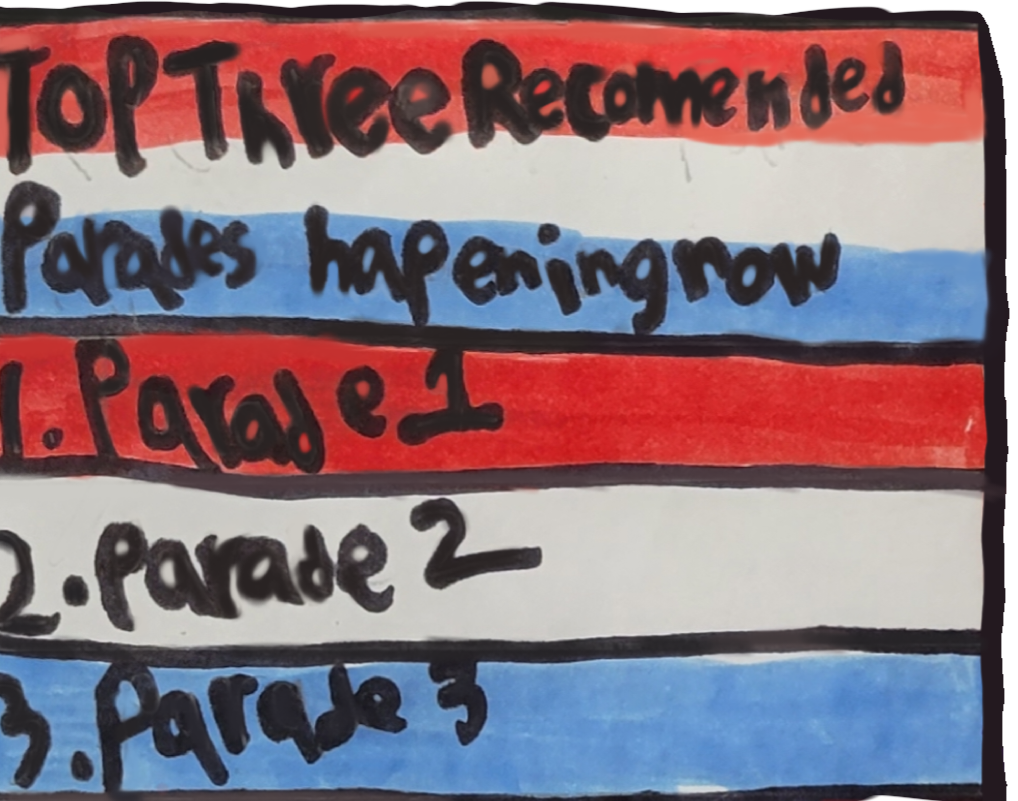 Top Three Recomended
Parades hapening now
1. Parade 1
2. Parade 2
3. Parade 3